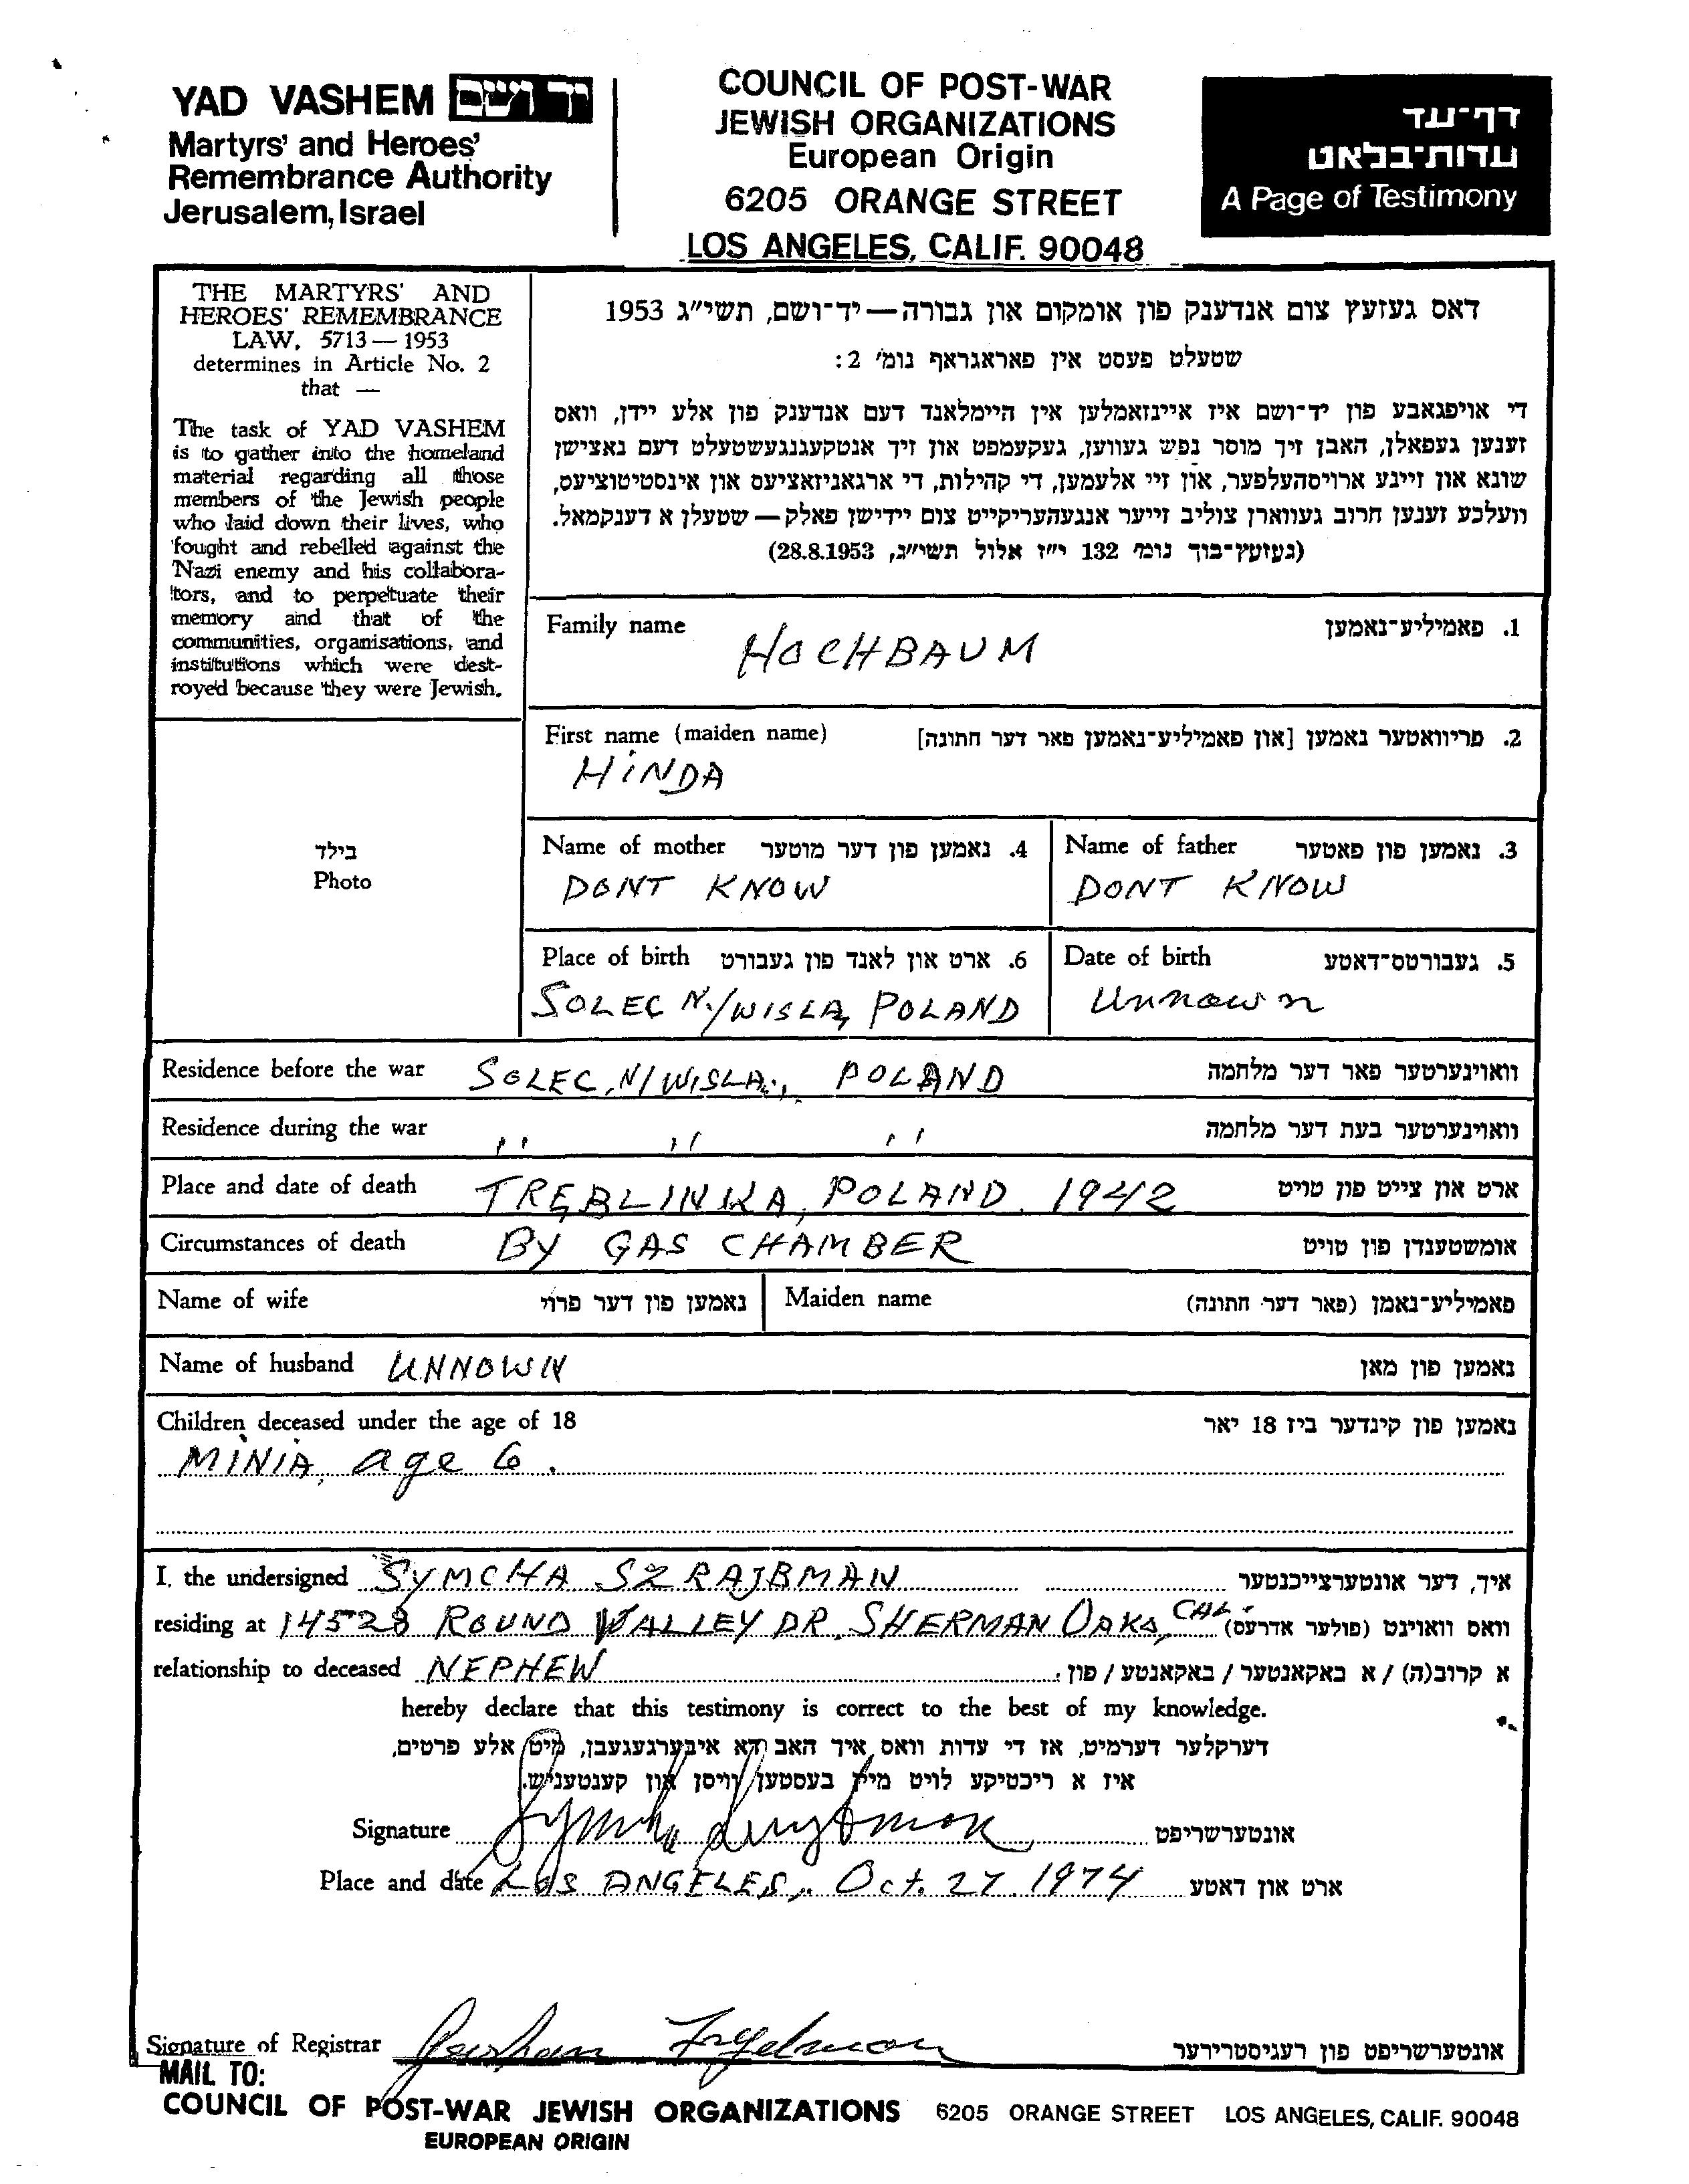 YAD VASHEM יד ושם
Martyrs' and Heroes'
Remembrance Authority
Jerusalem, Israel
COUNCIL OF POST-WAR
JEWISH ORGANIZATIONS
European Origin
6205 ORANGE STREET
LOS ANGELES, CALIF. 90048
דף־עד
עדות־בלאט
A Page of Testimony
THE MARTYRS' AND
HEROES' REMEMBRANCE
LAW, 5713 — 1953
determines in Article No. 2
that —
The task of YAD VASHEM
is to gather into the homeland
material regarding all those
members of the Jewish people
who laid down their lives, who
fought and rebelled against the
Nazi enemy and his collabora-
tors, and to perpetuate their
memory and that of the
communities, organisations, and
institutions which were dest-
royed because they were Jewish.
דאס געזעץ צום אנדענק פון אומקום און גבורה — יד־ושם, תשי״ג 1953
שטעלט פעסט אין פאראגראף נומ׳ 2:
די אויפגאבע פון יד־ושם איז איינזאמלען אין היימלאנד דעם אנדענק פון אלע יידן, וואס
זענען געפאלן, האבן זיך מוסר נפש געווען, געקעמפט און זיך אנטקעגנגעשטעלט דעם נאצישן
שונא און זיינע ארויסהעלפער, און זיי אלעמען, די קהילות, די ארגאניזאציעס און אינסטיטוציעס,
וועלכע זענען חרוב געווארן צוליב זייער אנגעהעריקייט צום יידישן פאלק — שטעלן א דענקמאל.
(געזעץ־בוך נומ׳ 132 י״ז אלול תשי״ג, 28.8.1953)
Family name 1. פאמיליע־נאמען
HOCHBAUM
First name (maiden name) 2. פריוואטער נאמען [און פאמיליע־נאמען פאר דער חתונה]
HINDA
בילד
Photo
Name of mother 4. נאמען פון דער מוטער
DONT KNOW
Name of father 3. נאמען פון פאטער
DONT KNOW
Place of birth 6. ארט און לאנד פון געבורט
SOLEC N./WISLA, POLAND
Date of birth 5. געבורטס־דאטע
Unnown
Residence before the war SOLEC, N/WISLA., POLAND וואוינערטער פאר דער מלחמה
Residence during the war '' '' '' וואוינערטער בעת דער מלחמה
Place and date of death TREBLINKA, POLAND. 1942 ארט און צייט פון טויט
Circumstances of death BY GAS CHAMBER אומשטענדן פון טויט
Name of wife נאמען פון דער פרוי Maiden name פאמיליע־נאמן (פאר דער חתונה)
Name of husband UNNOWN נאמען פון מאן
Children deceased under the age of 18 נאמען פון קינדער ביז 18 יאר
MINIA, age 6.
I, the undersigned SYMCHA SZRAJBMAN איך, דער אונטערצייכנטער
residing at 14528 ROUND VALLEY DR. SHERMAN OAKS, CAL. וואס וואוינט (פולער אדרעס)
relationship to deceased NEPHEW א קרוב(ה) / א באקאנטער / באקאנטע / פון:
hereby declare that this testimony is correct to the best of my knowledge.
דערקלער דערמיט, אז די עדות וואס איך האב דא איבערגעגעבן, מיט אלע פרטים,
איז א ריכטיקע לויט מיין בעסטען וויסן און קענטעניש.
Signature אונטערשריפט
Place and date LOS ANGELES, Oct. 27. 1974 ארט און דאטע
Signature of Registrar אונטערשריפט פון רעגיסטרירער
MAIL TO:
COUNCIL OF POST-WAR JEWISH ORGANIZATIONS 6205 ORANGE STREET LOS ANGELES, CALIF. 90048
EUROPEAN ORIGIN